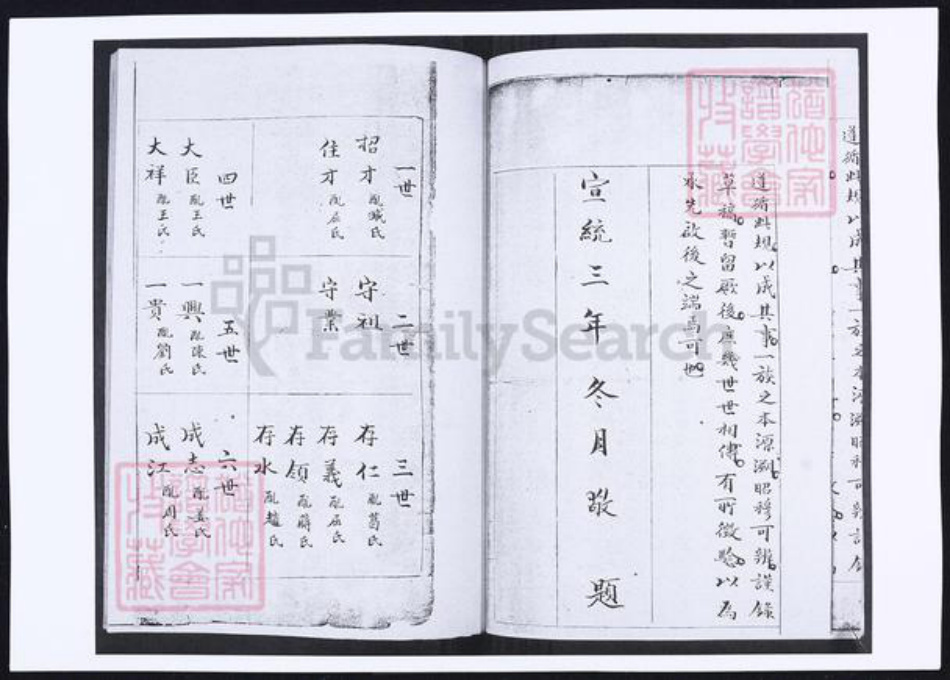 道循此規以成其事一族之本源淵昭穆可辨謹錄
草稿暫留厥後庶幾世世相傳有所徵驗以為
承先啟後之端焉可也
宣統三年冬月敬題
一世
招才 配臧氏
佳才 配屈氏
二世
守礼
守業
三世
存仁 配葛氏
存義 配屈氏
存領 配薛氏
存水 配趙氏
四世
大臣 配王氏
大祥 配王氏
五世
一興 配陳氏
一貴 配劉氏
六世
成志 配姜氏
成江 配周氏
FamilySearch